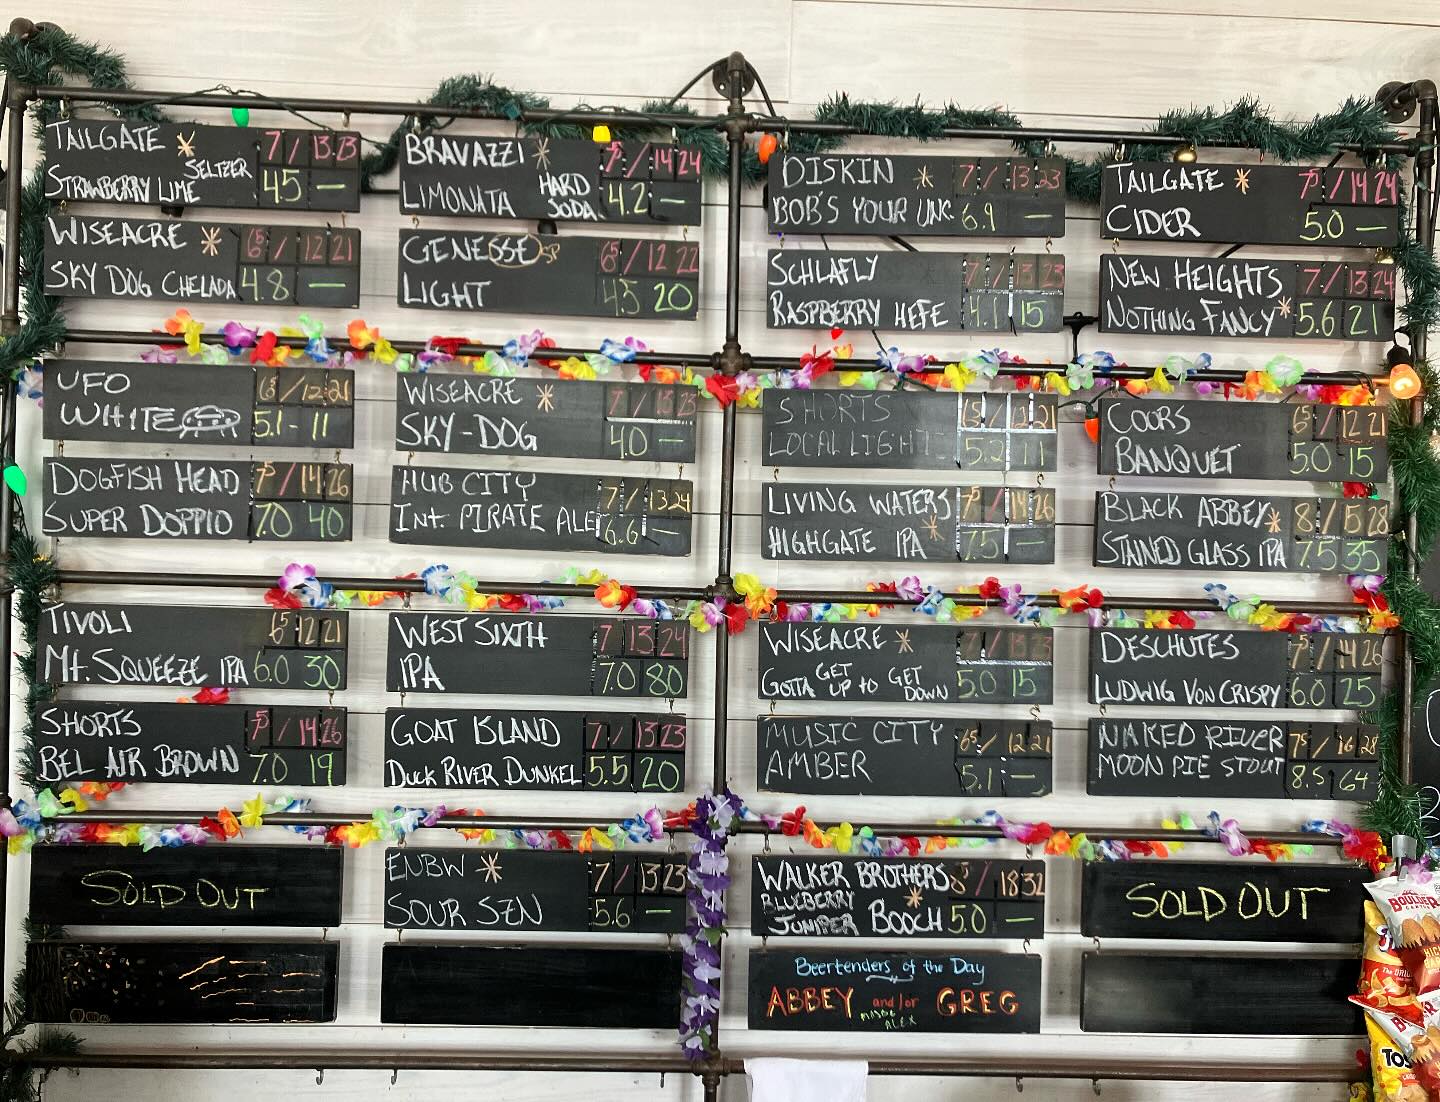 TAILGATE * 7 / 13 23
STRAWBERRY LIME SELTZER 4.5 —
WISEACRE * 6.5 / 12 21
SKY DOG CHELADA 4.8 —
BRAVAZZI * 7.5 / 14 24
LIMONATA HARD SODA 4.2 —
GENESSE SP 6.5 / 12 22
LIGHT 4.5 20
DISKIN * 7 / 13 23
BOB'S YOUR UNC. 6.9 —
SCHLAFLY 7 / 13 23
RASPBERRY HEFE 4.1 15
TAILGATE * 7.5 / 14 24
CIDER 5.0 —
NEW HEIGHTS 7 / 13 24
NOTHING FANCY * 5.6 21
UFO 6.5 / 12 21
WHITE 5.1 - 11
DOGFISH HEAD 7.5 / 14 26
SUPER DOPPIO 7.0 40
WISEACRE * 7 / 13 23
SKY-DOG 4.0 —
HUB CITY 7 / 13 24
INT. PIRATE ALE 6.6 —
SHORTS 6.5 / 12 21
LOCAL LIGHT 5.2 11
LIVING WATERS 7.5 / 14 26
HIGHGATE IPA * 7.5 —
COORS 6.5 / 12 21
BANQUET 5.0 15
BLACK ABBEY * 8 / 15 28
STAINED GLASS IPA 7.5 35
TIVOLI 6.5 12 21
MT. SQUEEZE IPA 6.0 30
SHORTS 7.5 / 14 26
BEL AIR BROWN 7.0 19
WEST SIXTH 7 13 24
IPA 7.0 80
GOAT ISLAND 7 / 13 23
DUCK RIVER DUNKEL 5.5 20
WISEACRE * 7 / 13 23
GOTTA GET UP TO GET DOWN 5.0 15
MUSIC CITY 6.5 / 12 21
AMBER 5.1 —
DESCHUTES 7.5 / 14 26
LUDWIG VON CRISPY 6.0 25
NAKED RIVER 7.5 / 16 28
MOON PIE STOUT 8.5 64
SOLD OUT
ENBW * 7 / 13 23
SOUR SZN 5.6 —
WALKER BROTHERS 8.5 / 18 32
BLUEBERRY *
JUNIPER BOOCH 5.0 —
SOLD OUT
Beertenders of the Day
ABBEY and/or GREG
MAYBE ALEX
BOULDER
TOS